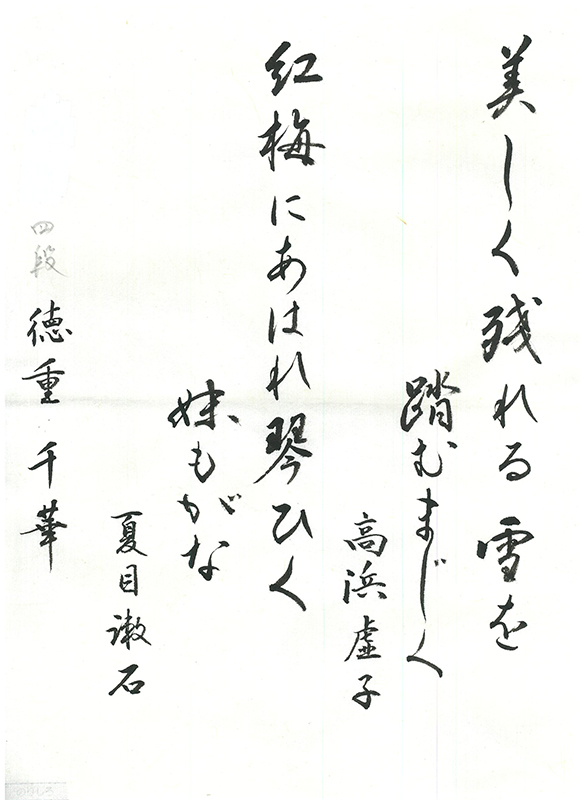 美しく残れる雪を
踏むまじく
高浜虚子
紅梅にあはれ琴ひく
妹もがな
夏目漱石
四段
徳重千華